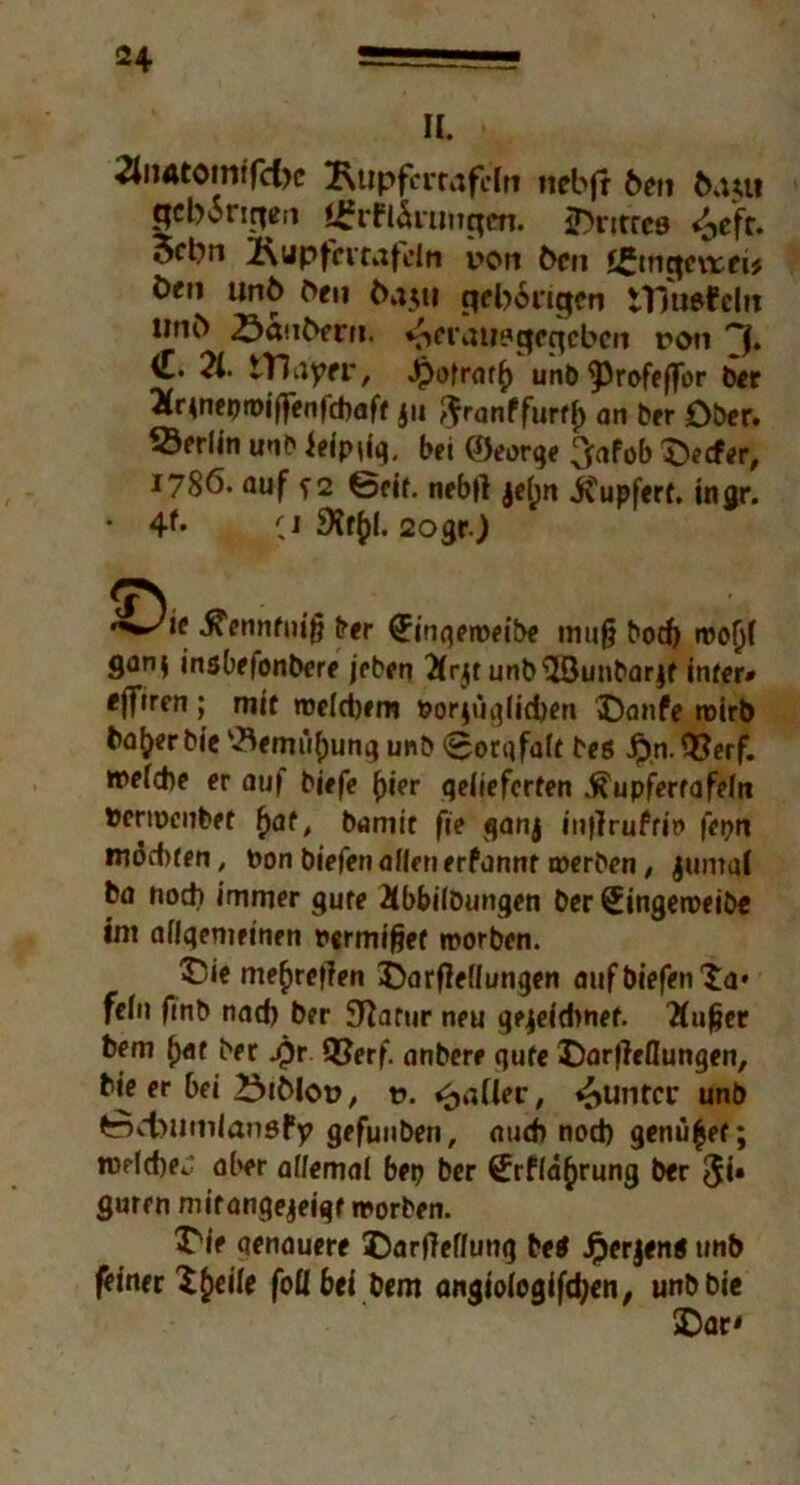 24
II.
Anatomische Kupfertafeln nebst den dazu
gehörigen Erklärungen. Drittes Heft.
Zehn Kupfertafeln von den Eingewei-
den und den dazu gehörigen Muskeln
und Bändern. Herausgegeben von J.
C. A. Mayer, Hofrath und Professor der
Arzneywissenschaft zu Frankfurth an der Oder.
Berlin und Leipzig, bei George Jakob Decker,
1786. auf 52 Seit. nebst zehn Kupfert. in gr.
4t. (1 Rthl. 20gr.)
Die Kenntniß der Eingeweibe muß doch wohl
ganz insbesondere jeden Arzt und Wundarzt inter-
essiren; mit welchem vorzüglichen Danke wird
daher die Bemühung und Sorgfalt des Hn. Verf.
welche er auf diese hier gelieferten Kupfertafeln
verwendet hat, damit sie ganz instruktiv seyn
möchten, von diesen allen erkannt werden, zumal
da noch immer gute Abbildungen der Eingeweide
im allgemeinen vermißet worden.
Die mehresten Darstellungen auf diesen Ta-
feln sind nach der Natur neu gezeichnet. Außer
dem hat der Hr. Verf. andere gute Darstellungen,
die er bei Bidlov, v. Haller, Hunter und
Schumlansky gefunden, auch noch genützet;
welches aber allemal bey der Erklährung der Fi-
guren mitangezeigt worden.
Die genauere Darstellung des Herzens und
seiner Theile soll bei dem angiologischen, und die
Dar-